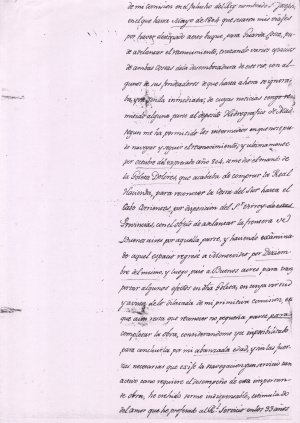 de mi comision en el falucho del Rey nombrado Sn. Jorge,
en el que hasta Mayo de 1804 que cuatro mas viajes
por haver designado aquel buque, para Guarda Costa, pu-
de adelantar el reconocimiento, cruzando varios espacios
de ambas costas de la desembocadura de este rio, con al-
gunos de sus fondeaderos que hasta ahora se ignora-
ba, y inmediata; de cuyas noticias tengo re-
mitido alguna parte al deposito Hidrografico de Mad.
segun me ha permitido los intermedios en que no pu-
de navegar y seguir el reconocimiento; y ultimamente
por octubre del expresado año 804. a me dio el mando de
la Goleta Dolores, que acababa de comprar de Real
Hacienda, para reconocer la Costa del Sur hasta el
Cabo Corrientes, por disposicion del Sr. Virrey de estas
Provincias, con el objeto de adelantar la frontera de
Buenos aires por aquella parte, y haviendo examina-
do aquel espacio regresé a Montevideo por Diciem-
bre del mismo, y luego pasé a Buenos aires para tran-
sportar algunos efectos en dha Goleta, en cuyo servicio
y a virtud de lo dilatado de mi primitiva comision, en
que aun resta que reconocer no pequeña parte para
completar la obra, considerandome ya imposibilitado
para concluirla por mi abanzada edad, y sin las fuer-
zas necesarias que exije la navegacion para servicio tan
activo como requiere el desempeño de esta impor-
te obra, he creido serme indispensable, estimulado
del amor que he profesado al Rl. Servicio en los 33 años